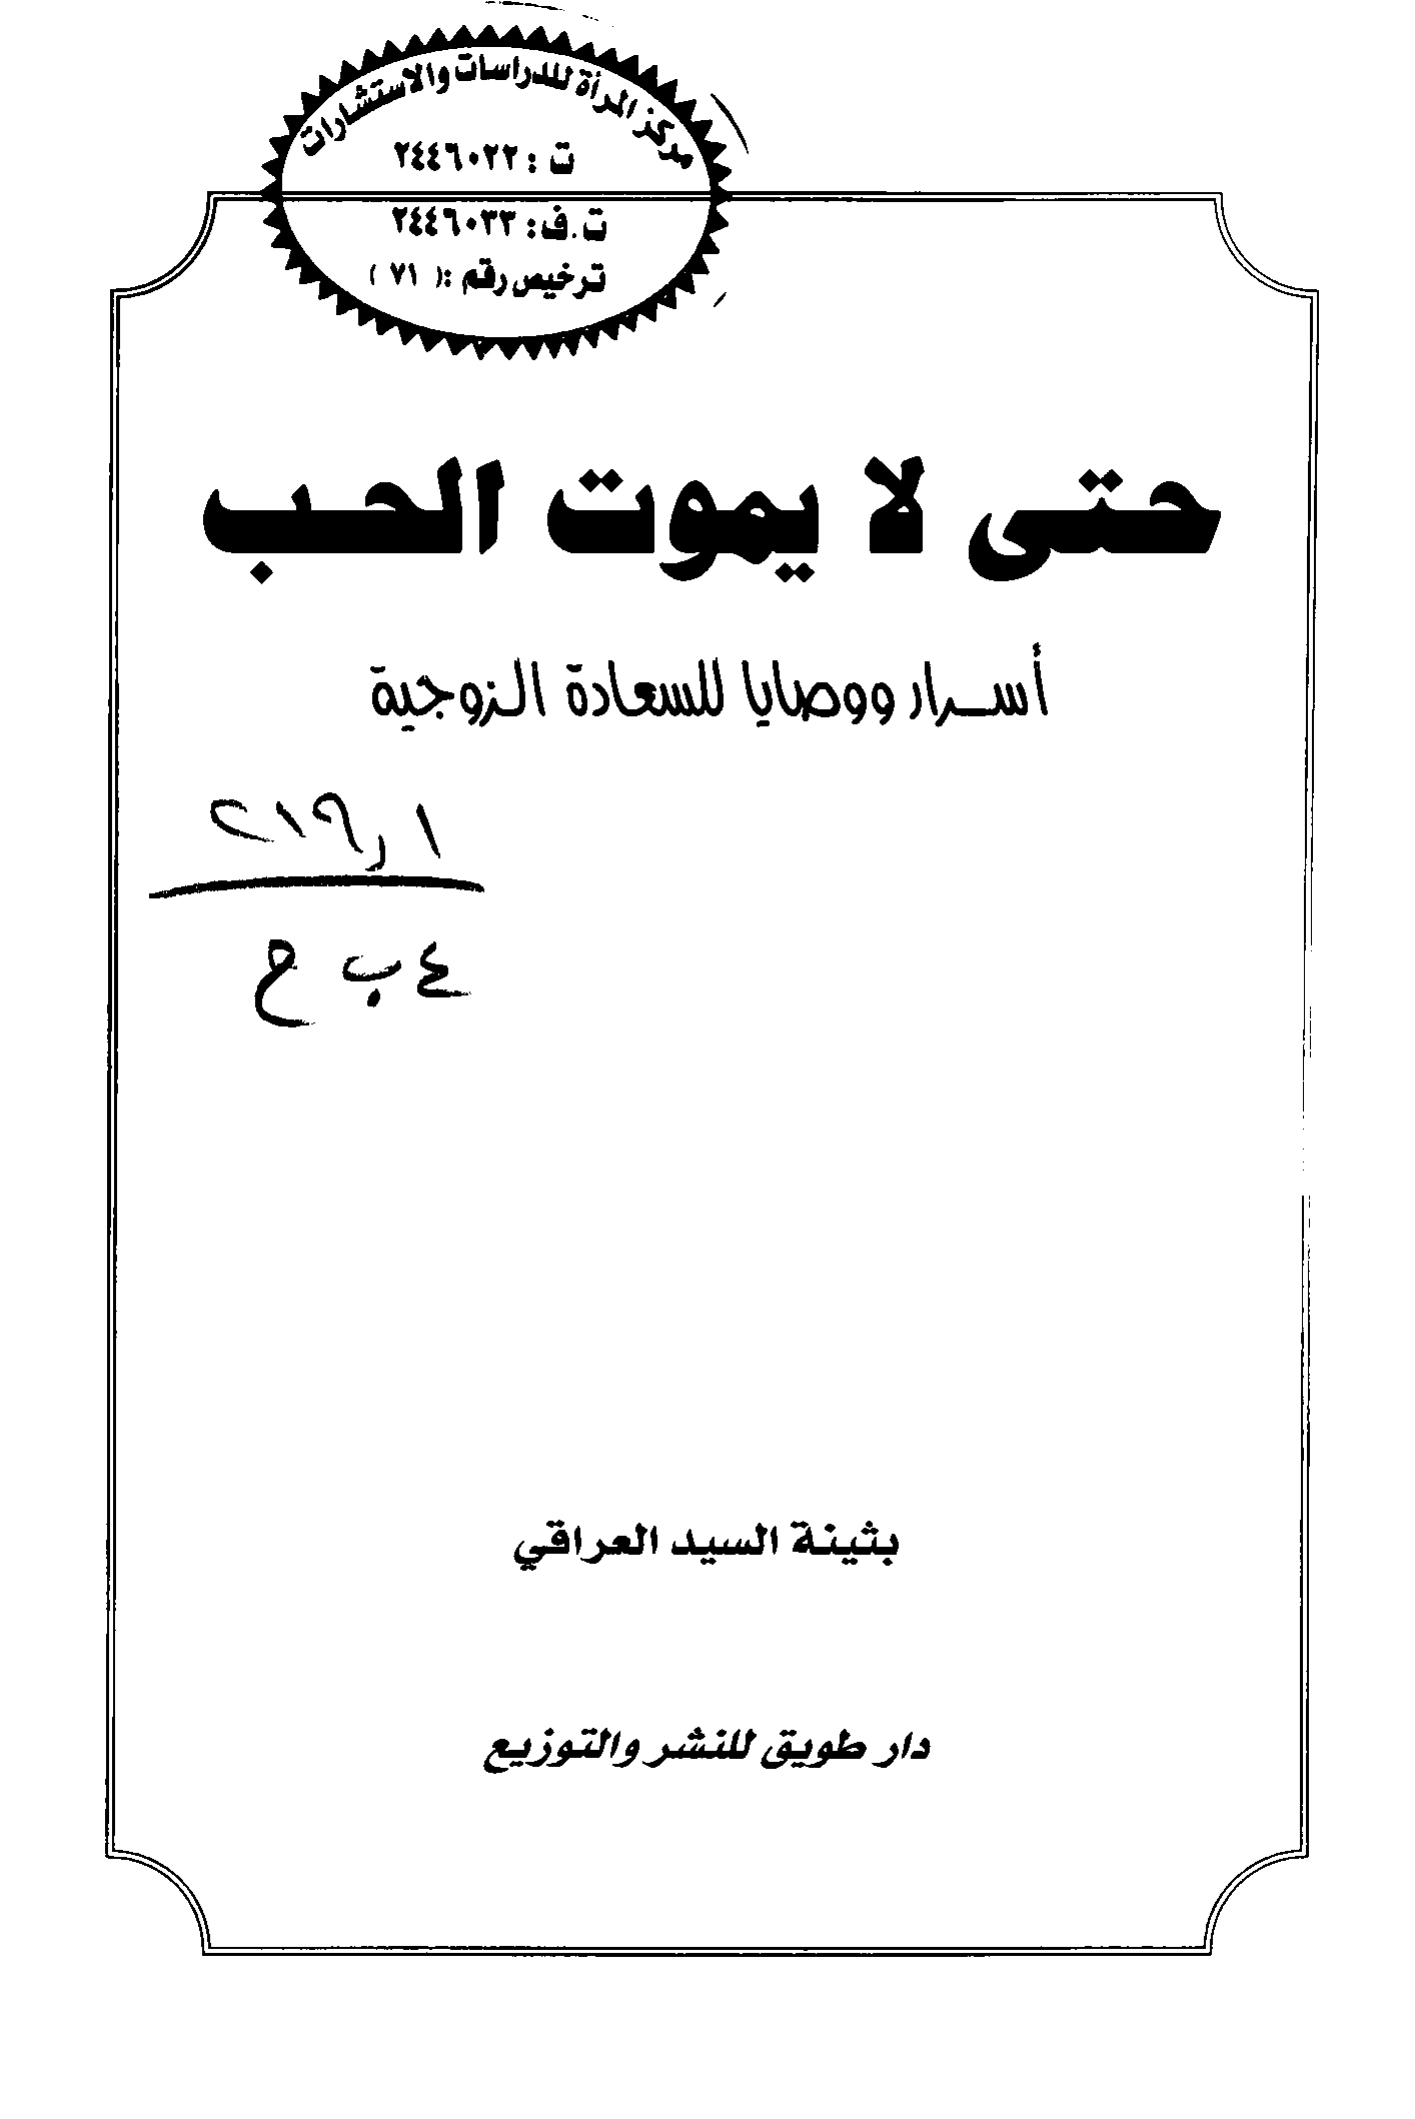 مركز المرأة للدراسات والاستشارات
ت : ٢٤٤٦٠٢٢
ت.ف: ٢٤٤٦٠٣٣
ترخيص رقم :( ٧١ )
حتى لا يموت الحب
أسرار ووصايا للسعادة الزوجية
٢١٩,١
ع ب ح
بثينة السيد العراقي
دار طويق للنشر والتوزيع